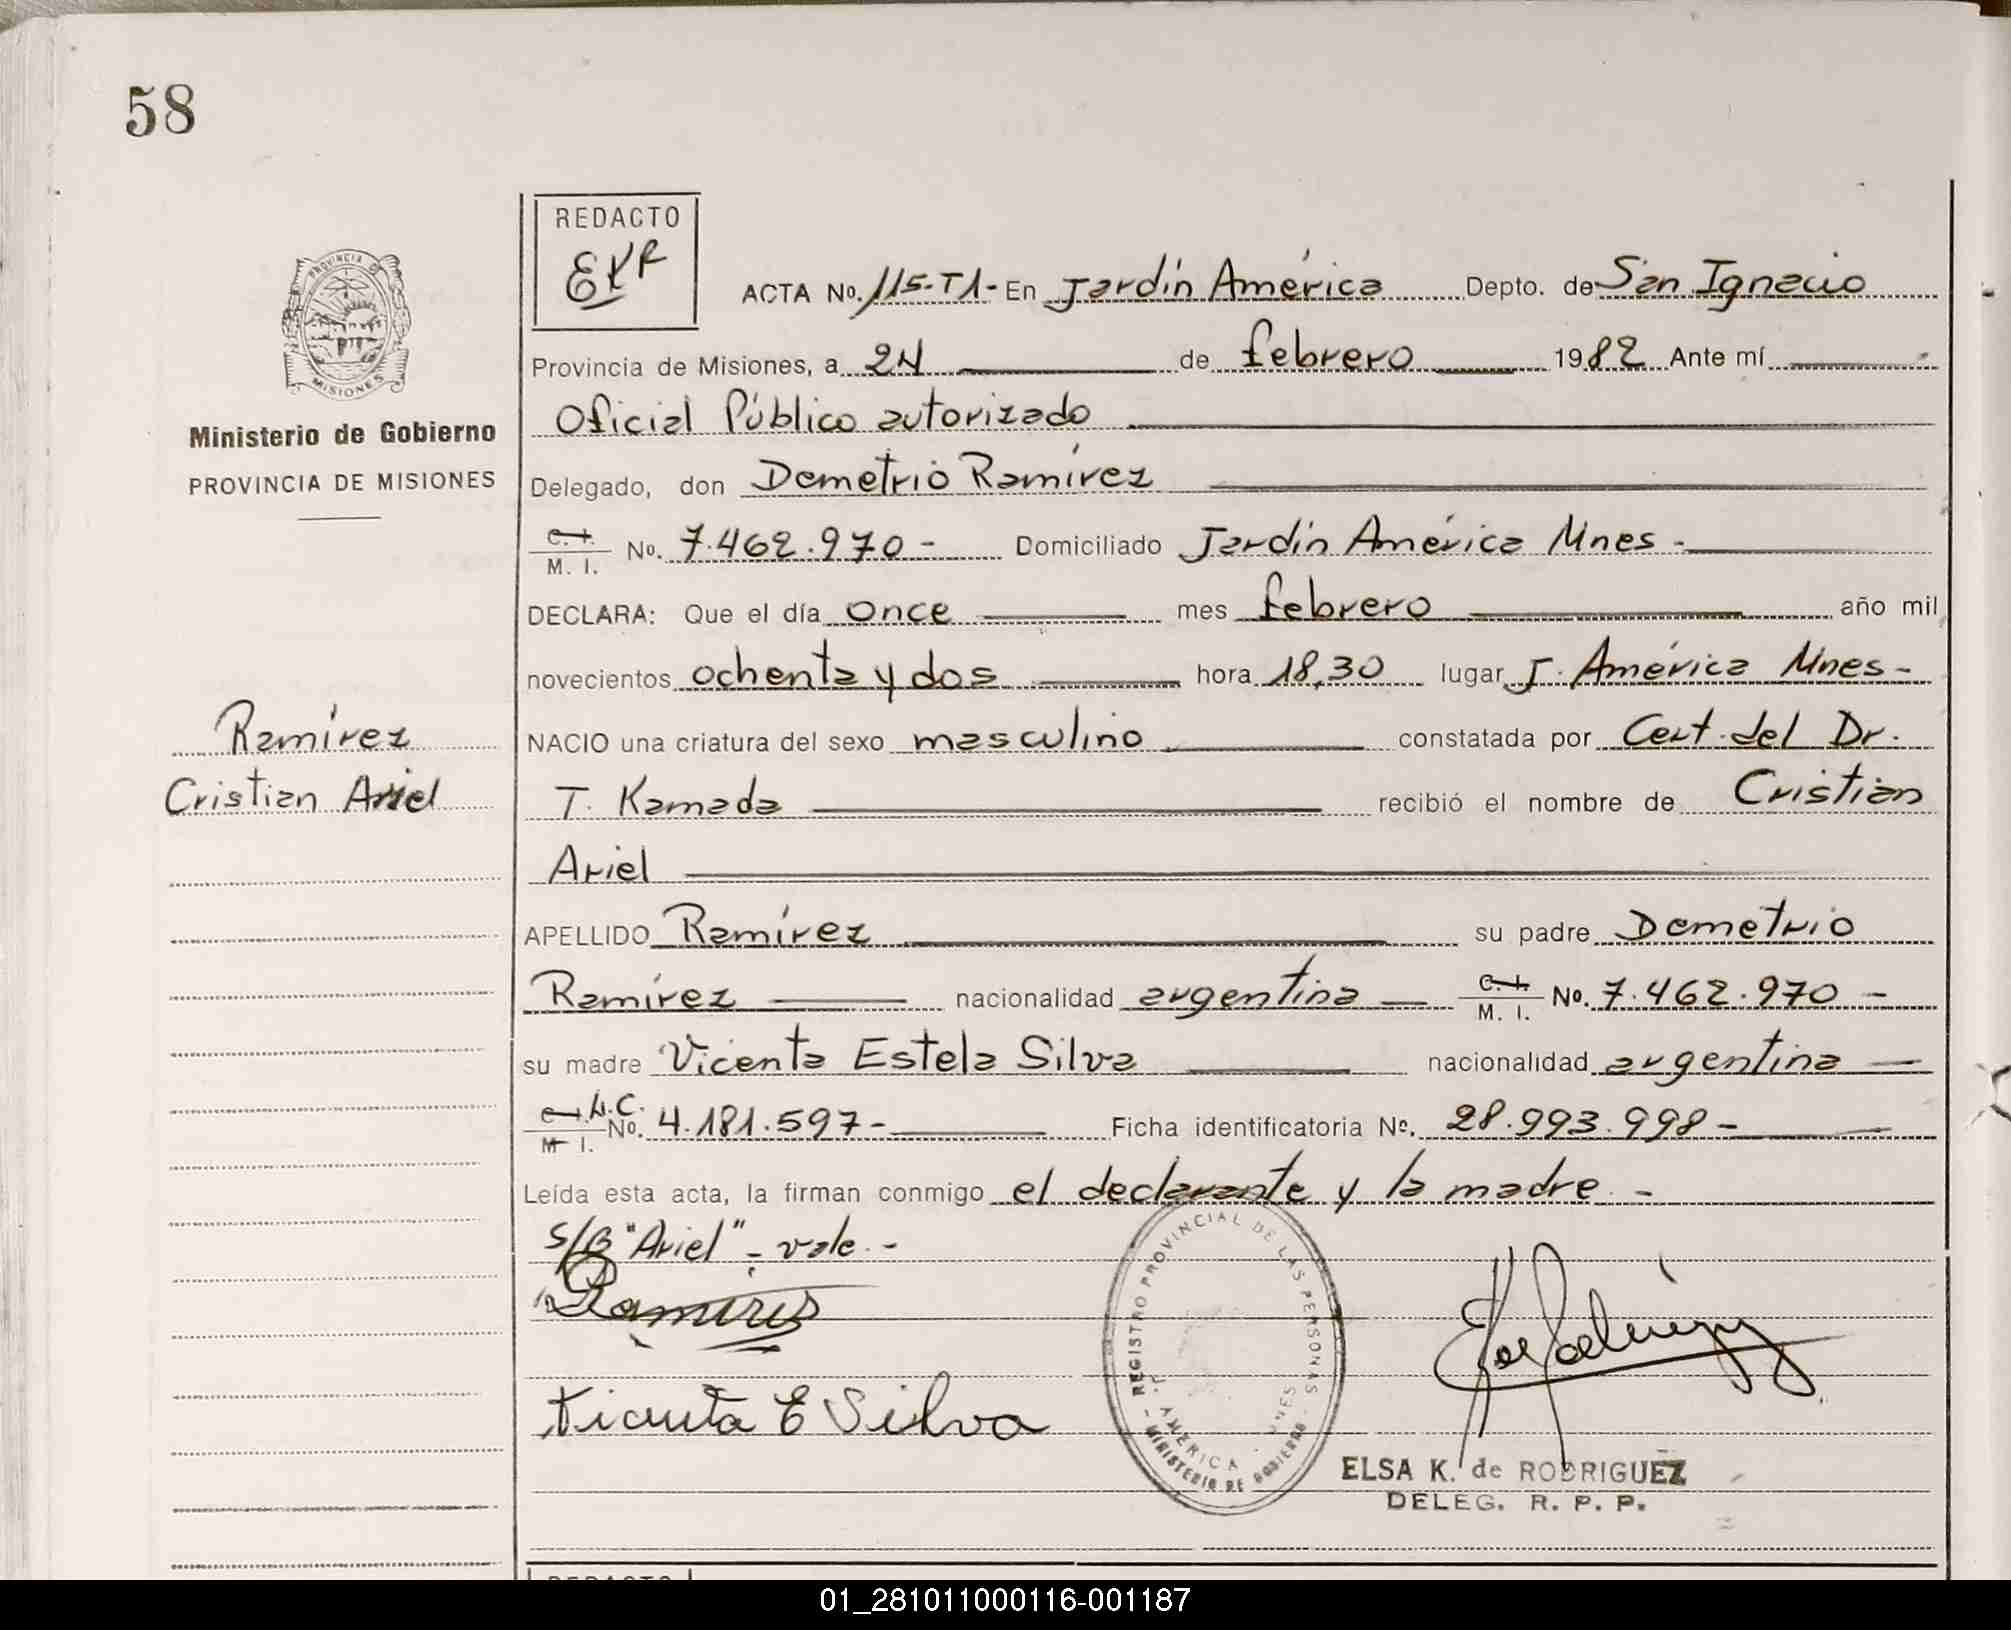 58
REDACTO
EKR
PROVINCIA D
MISIONES
Ministerio de Gobierno
PROVINCIA DE MISIONES
ACTA No. 115-T1- En Jardín América Depto. de San Ignacio
Provincia de Misiones, a 24 de febrero 1982 Ante mí
Oficial Público autorizado
Delegado, don Demetrio Ramírez
C. I.
M. I. No. 7.462.970- Domiciliado Jardín América Mnes-
DECLARA: Que el día once mes febrero año mil
novecientos ochenta y dos hora 18,30 lugar J. América Mnes-
NACIO una criatura del sexo masculino constatada por Cert. del Dr.
T. Kamada recibió el nombre de Cristian
Ariel
Ramírez
Cristian Ariel
APELLIDO Ramírez su padre Demetrio
Ramírez nacionalidad argentina C. I.
M. I. No. 7.462.970-
su madre Vicenta Estela Silva nacionalidad argentina
L.C.
M I. No. 4.181.597- Ficha identificatoria No. 28.993.998-
Leída esta acta, la firman conmigo el declarante y la madre.-
S/B "Ariel"- vale.-
Ramires
Vicenta E Silva
REGISTRO PROVINCIAL DE LAS PERSONAS
J. AMERICA - MNES
MINISTERIO DE GOBIERNO
ELSA K. de RODRIGUEZ
DELEG. R. P. P.
REDACTO
01_281011000116-001187